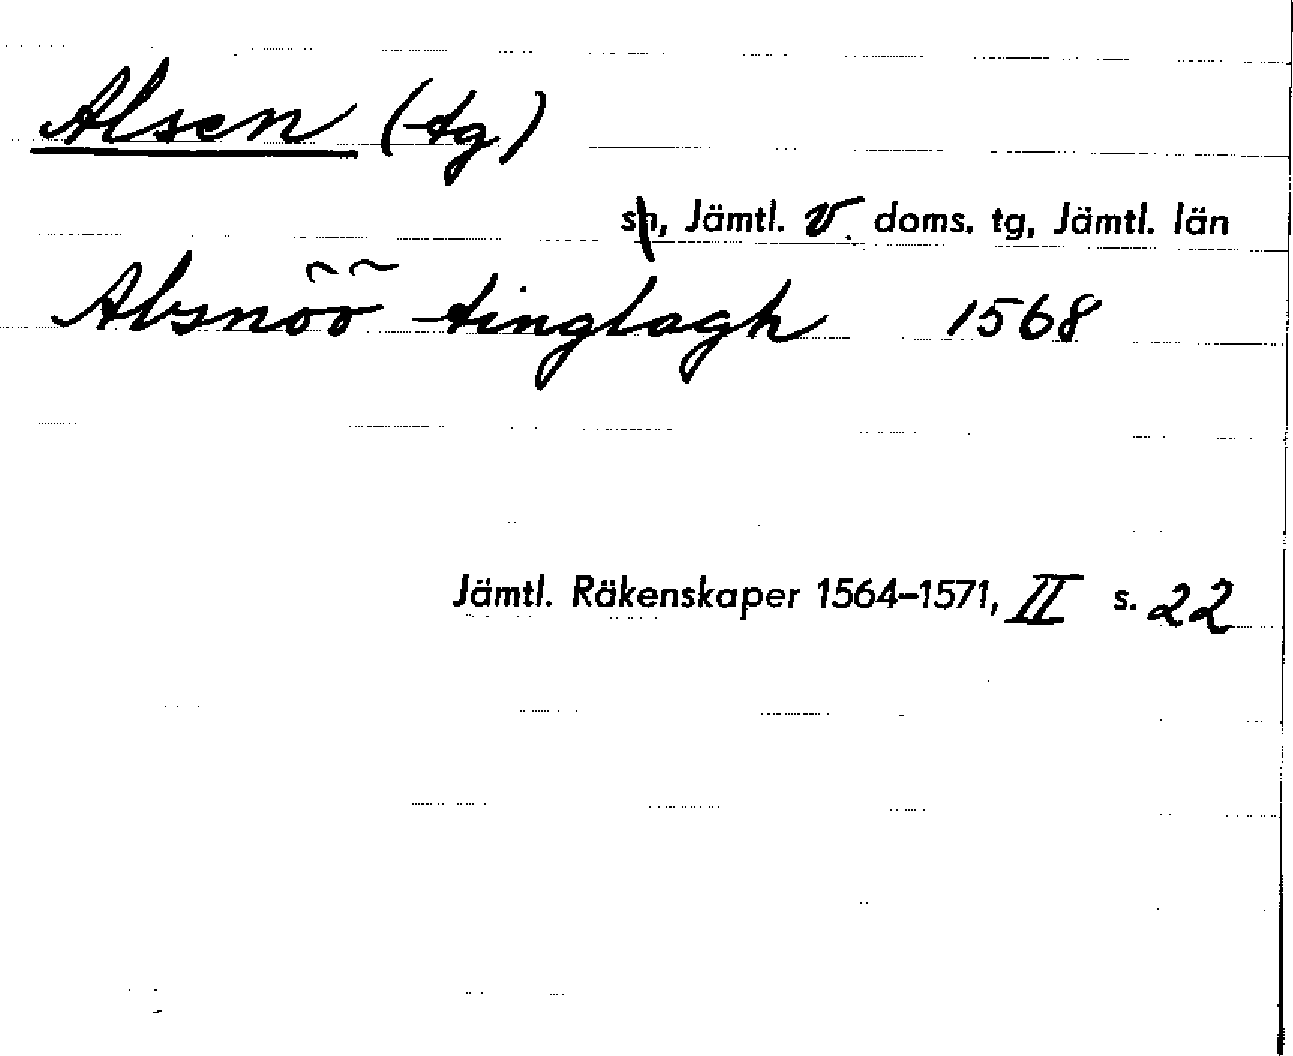 Alsen (tg)
sn, Jämtl. v. doms. tg, Jämtl. län
Alsnöö tinglagh 1568
Jämtl. Räkenskaper 1564–1571, II s. 22